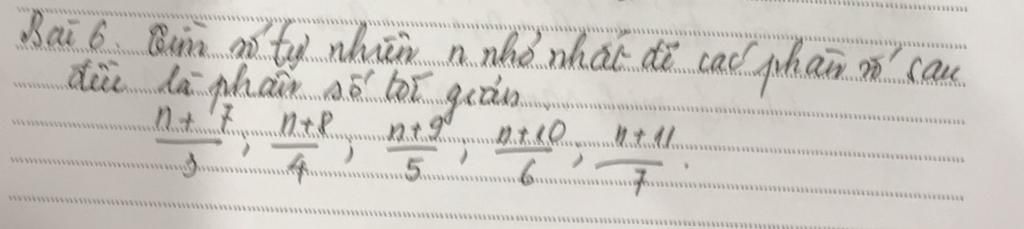 Bài 6. Tìm số tự nhiên n nhỏ nhất để các phân số sau
đều là phân số tối giản.
n+7/3; n+8/4; n+9/5; n+10/6; n+11/7.